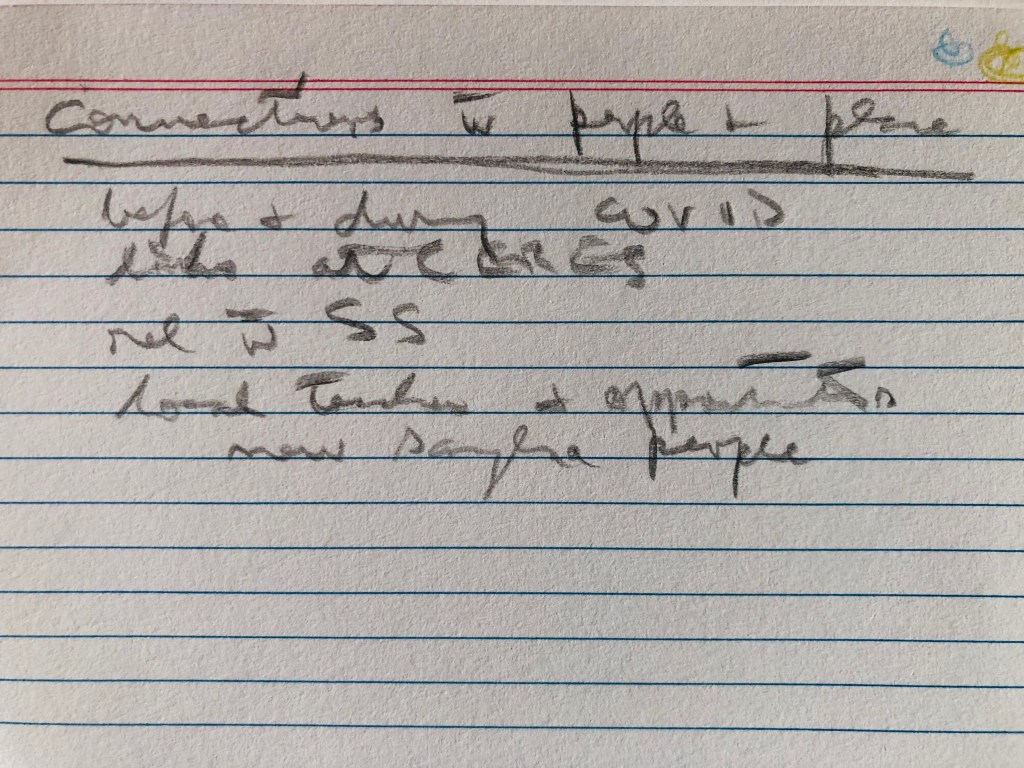 Connections w̄ people + place
before + during COVID
links at CERES
rel w̄ SS
local teachers + opportunities
new sangha people